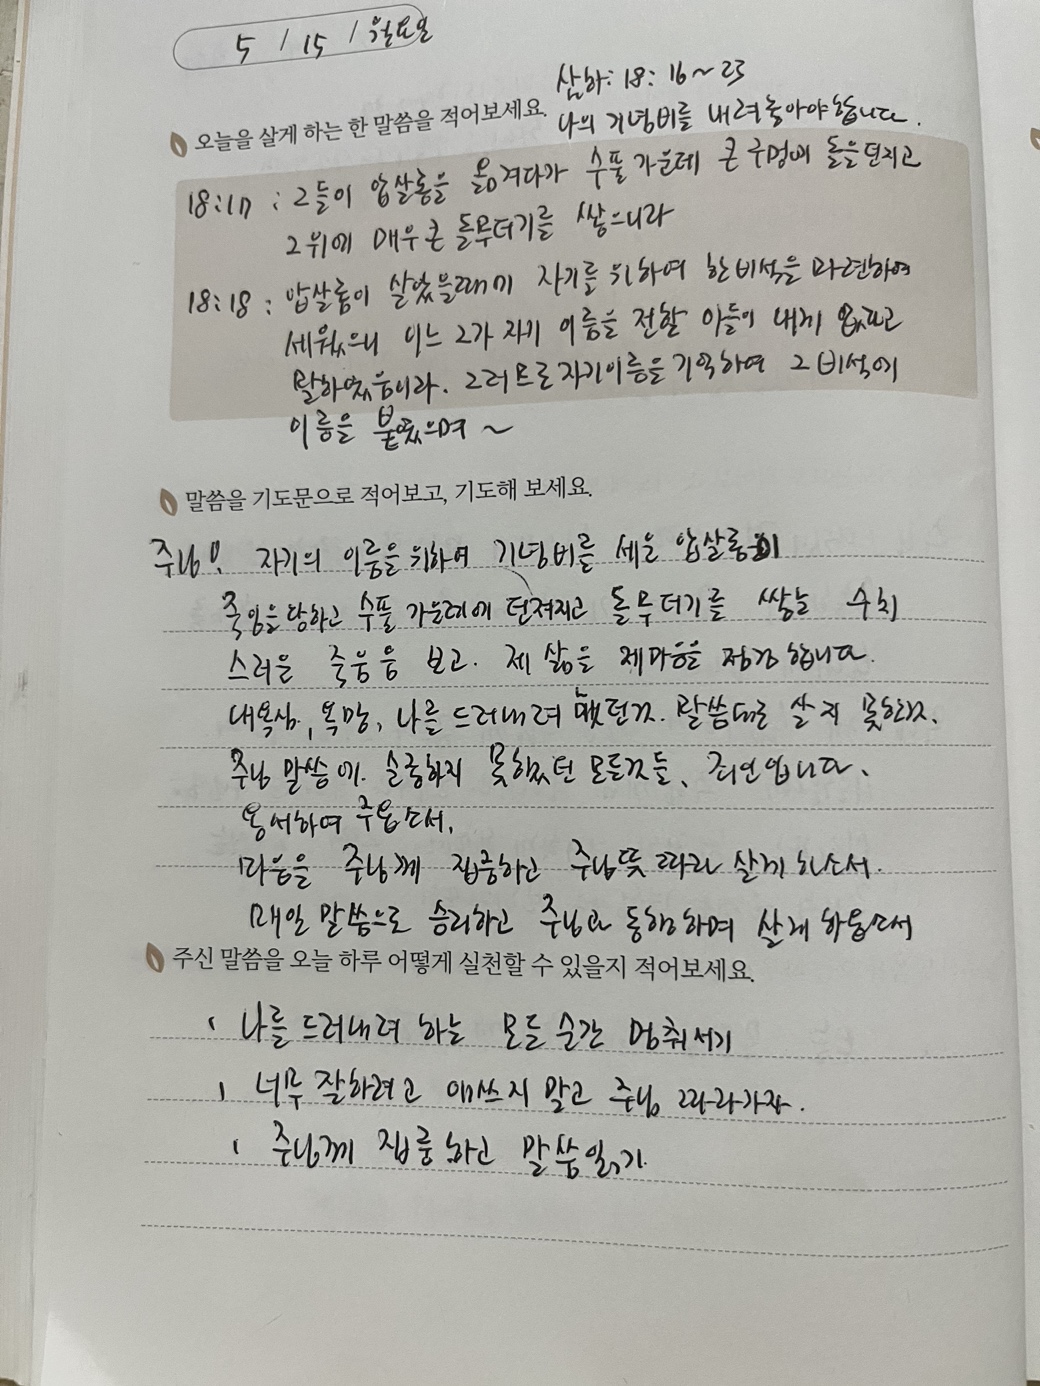 5 / 15 / 월요일
삼하: 18: 16~23
오늘을 살게 하는 한 말씀을 적어보세요.
나의 기념비를 내려놓아야합니다.
18:17 : 그들이 압살롬을 옮겨다가 수풀 가운데 큰 구멍에 돌을 던지고
그위에 매우 큰 돌무더기를 쌓으니라
18:18 : 압살롬이 살았을때에 자기를 위하여 한 비석을 마련하여
세웠으니 이는 그가 자기 이름을 전할 아들이 내게 없다고
말하였음이라. 그러므로 자기이름을 기억하여 그 비석에
이름을 붙였으며 ~
말씀을 기도문으로 적어보고, 기도해 보세요.
주님! 자기의 이름을 위하여 기념비를 세운 압살롬이
죽임을 당하고 수풀 가운데에 던져지고 돌무더기를 쌓는 수치
스러운 죽음을 보고. 제 삶을 제마음을 점검합니다.
내욕심, 욕망, 나를 드러내려 했던것. 말씀대로 살지 못한것.
주님 말씀에 순종하지 못했던 모든것들, 죄인입니다.
용서하여 주옵소서.
마음을 주님께 집중하고 주님뜻 따라 살게 하소서.
매일 말씀으로 승리하고 주님과 동행하며 살게 하옵소서
주신 말씀을 오늘 하루 어떻게 실천할 수 있을지 적어보세요.
나를 드러내려 하는 모든 순간 멈춰서기
너무 잘하려고 애쓰지 말고 주님 따라가자.
주님께 집중하고 말씀읽기